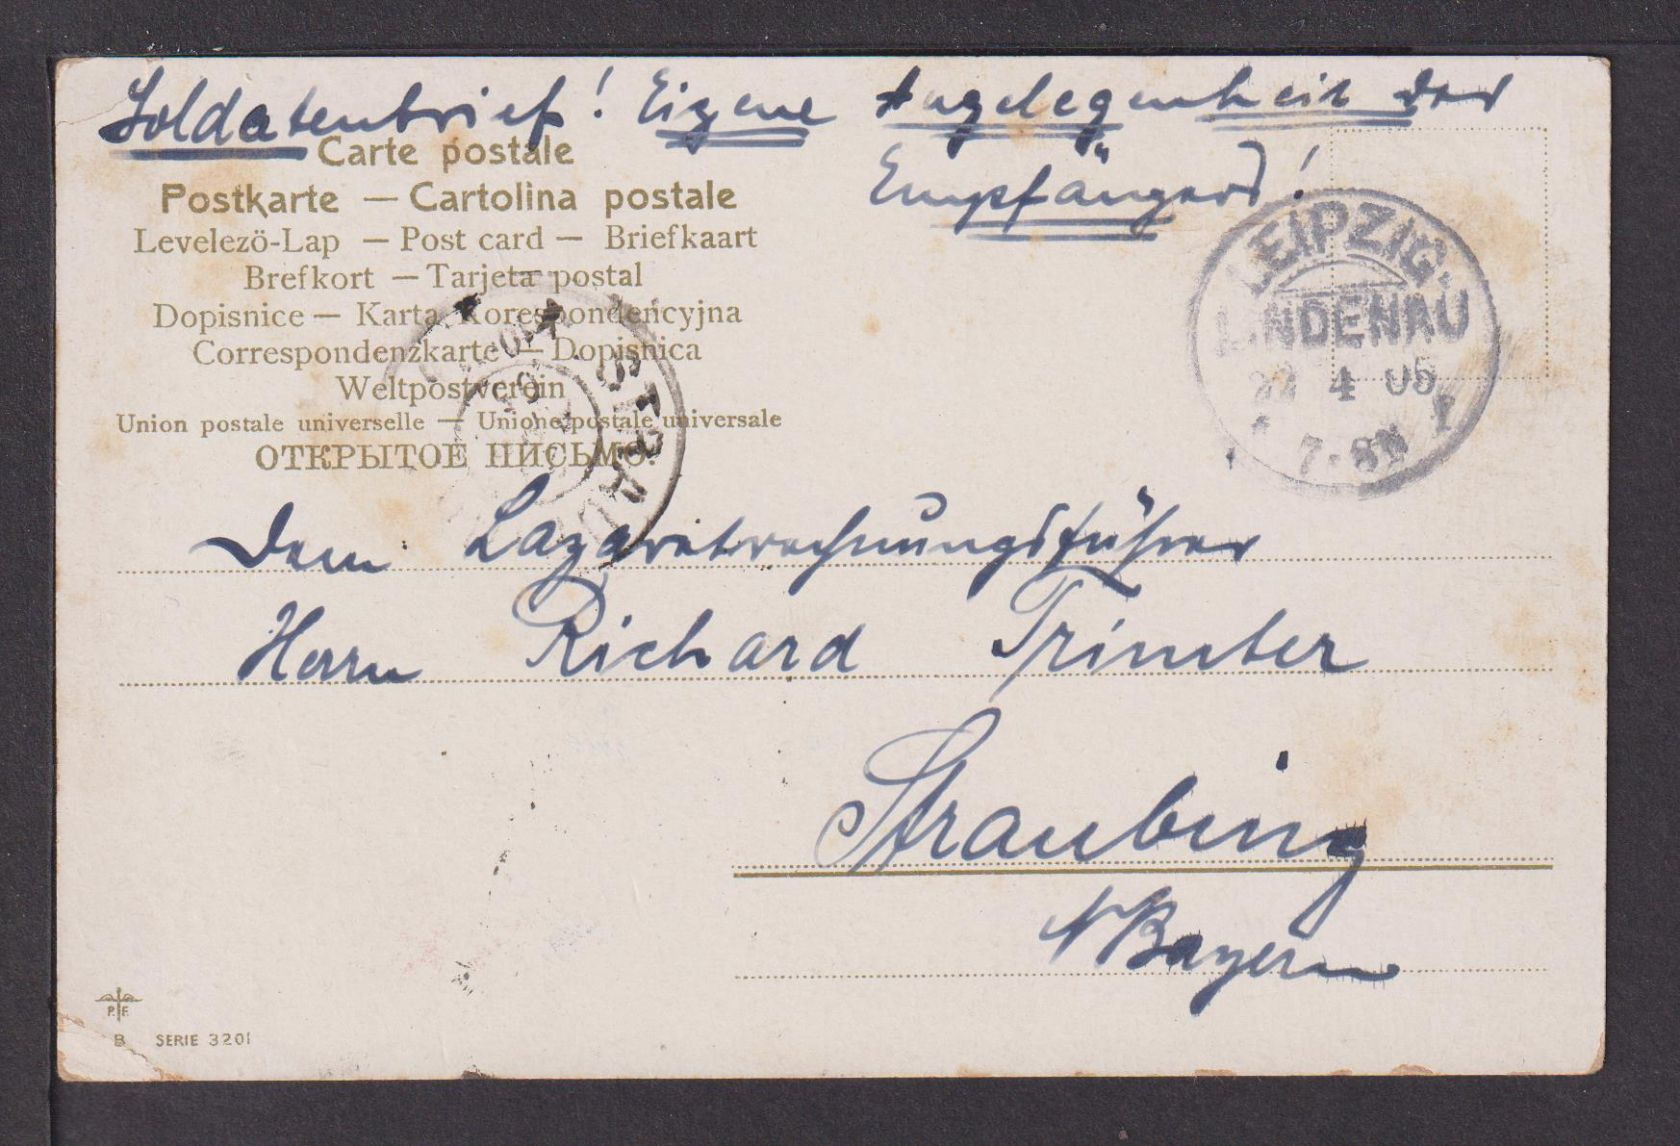 Soldatenbrief! Eigene Angelegenheit des
Empfängers!
Carte postale
Postkarte — Cartolina postale
Levelezö-Lap — Post card — Briefkaart
Brefkort — Tarjeta postal
Dopisnice — Karta Korespondencyjna
Correspondenzkarte — Dopisnica
Weltpostverein
Union postale universelle — Unione postale universale
ОТКРЫТОЕ ПИСЬМО.
LEIPZIG-
LINDENAU
22 4 05
7-8N
Dem Lazaretrechnungsführer
Herrn Richard
Straubing
Bayern
P. F.
B SERIE 3201